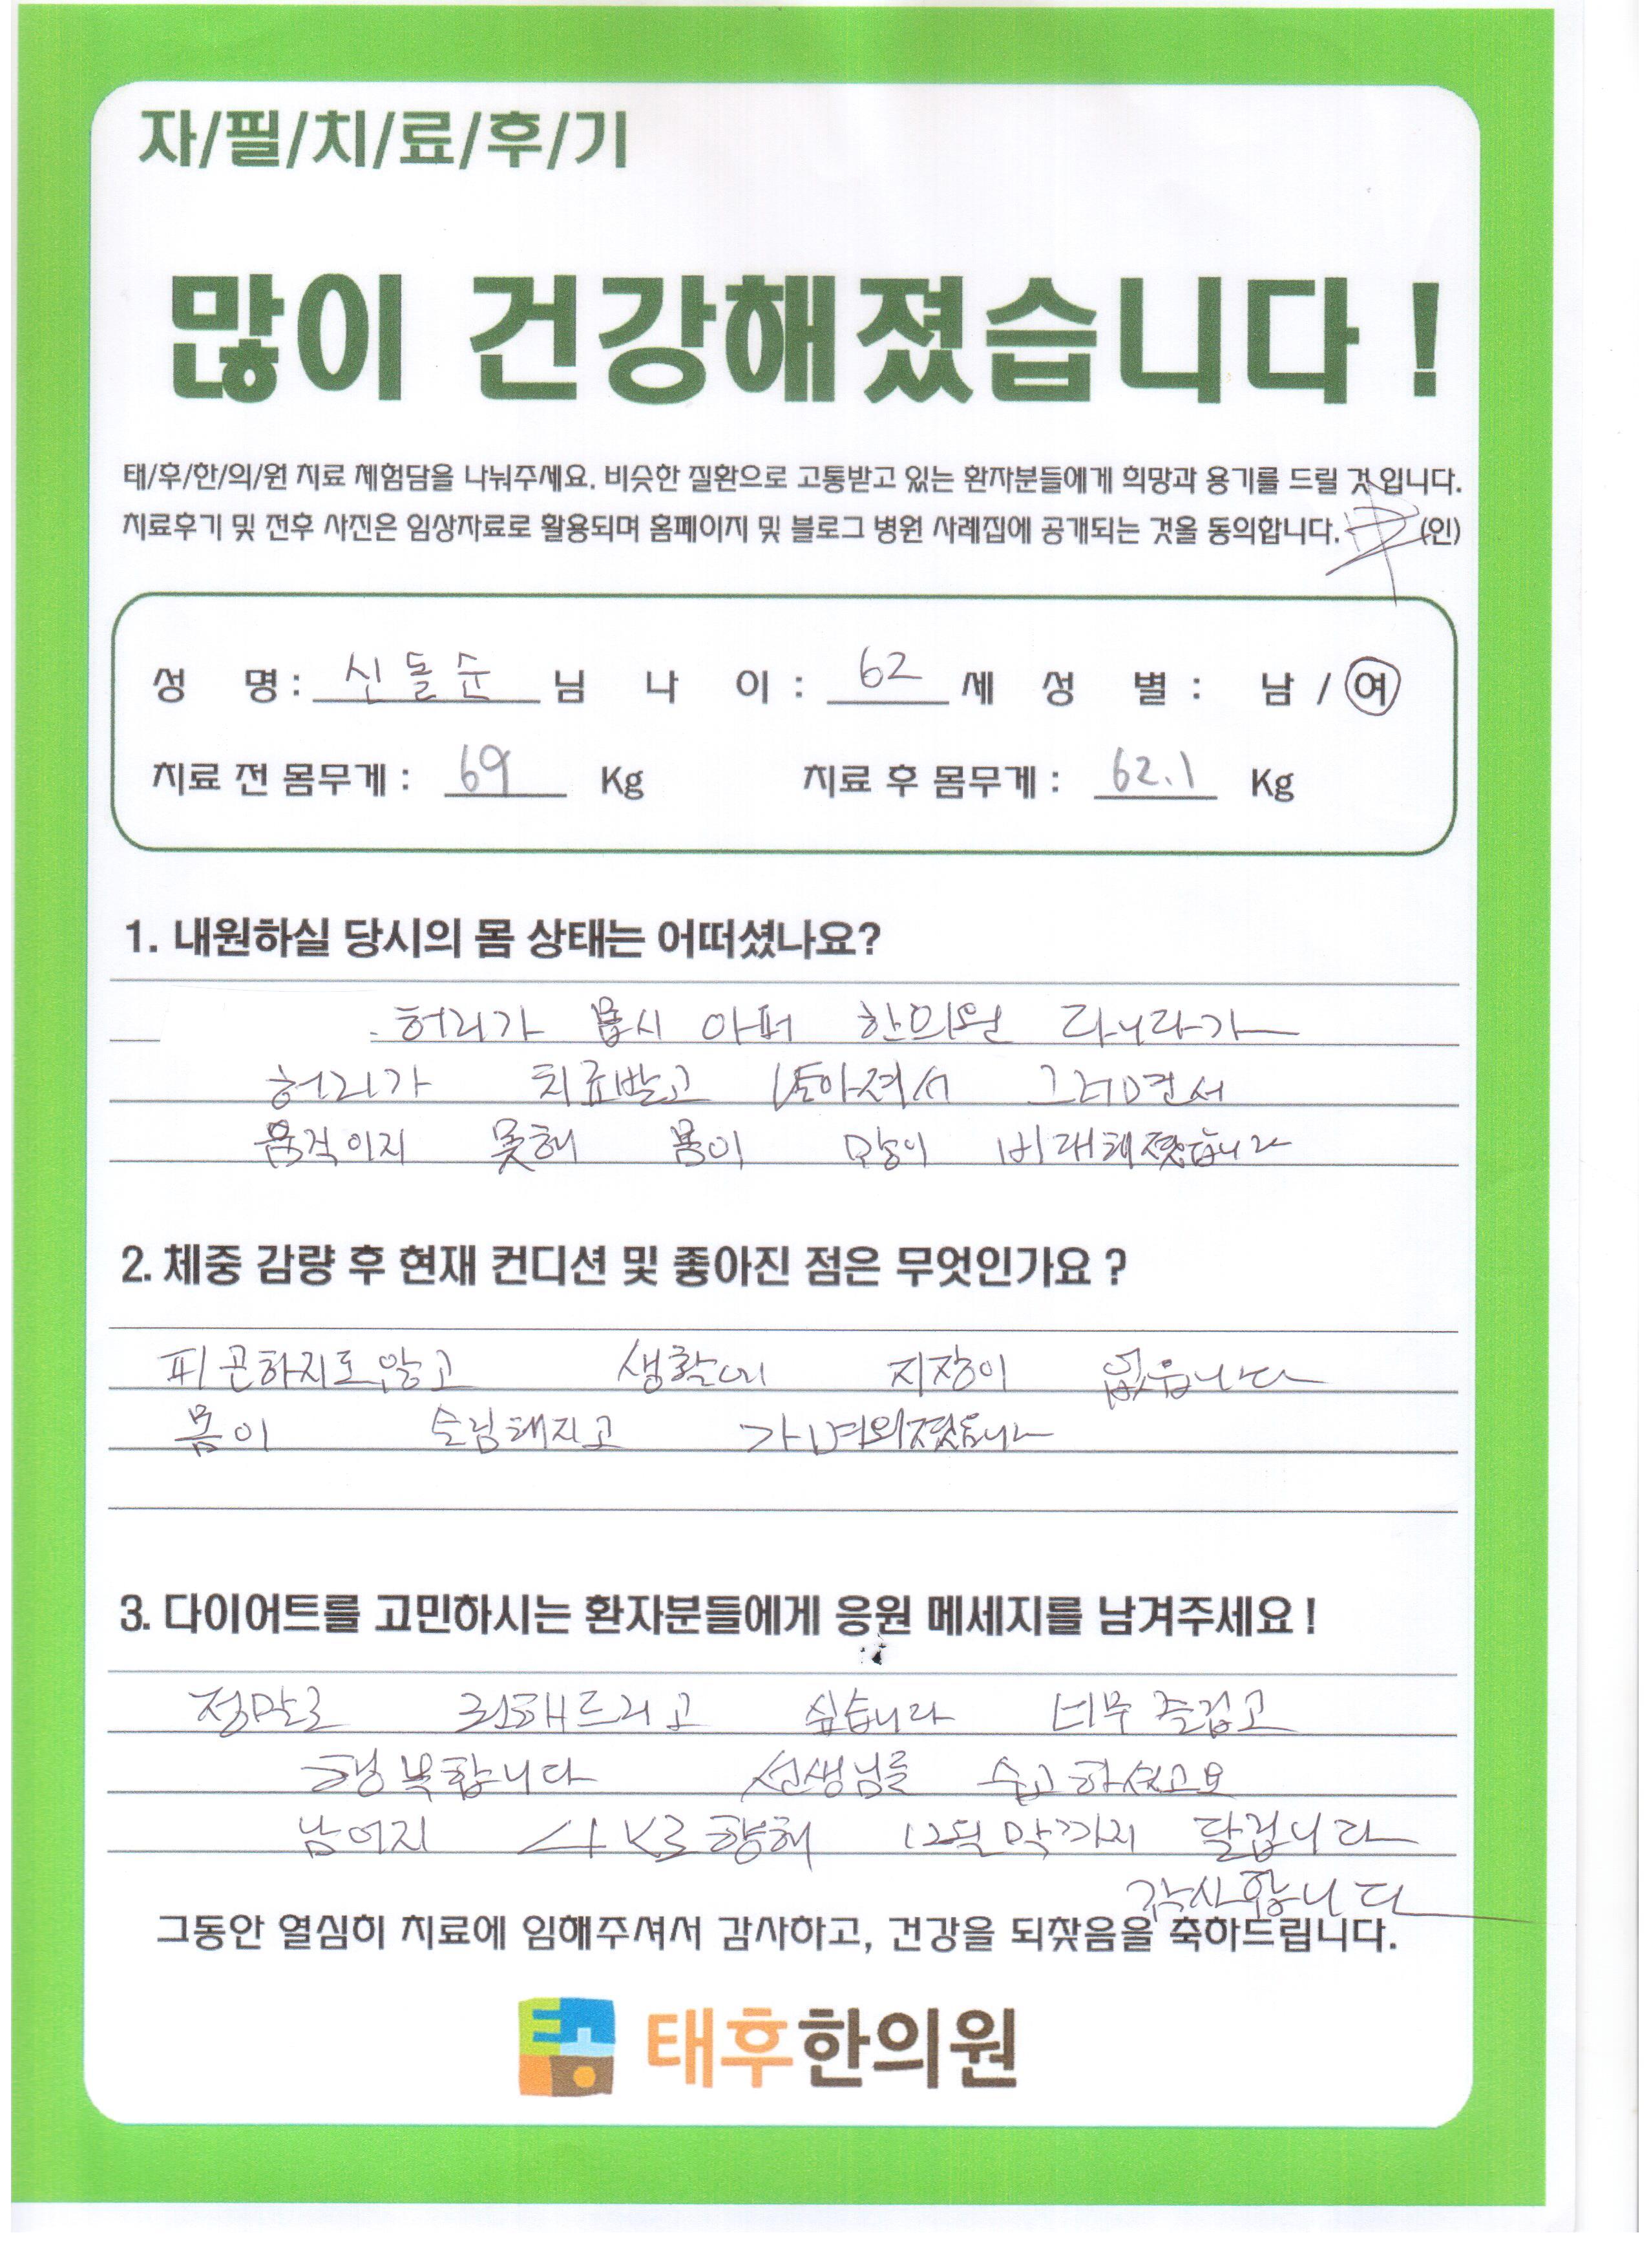 자/필/치/료/후/기
많이 건강해졌습니다 !
태/후/한/의/원 치료 체험담을 나눠주세요. 비슷한 질환으로 고통받고 있는 환자분들에게 희망과 용기를 드릴 것 입니다.
치료후기 및 전후 사진은 임상자료로 활용되며 홈페이지 및 블로그 병원 사례집에 공개되는 것을 동의합니다. (인)
성 명 : 신돌순 님 나 이 : 62 세 성 별 : 남 / 여
치료 전 몸무게 : 69 Kg 치료 후 몸무게 : 62.1 Kg
1. 내원하실 당시의 몸 상태는 어떠셨나요?
허리가 몹시 아퍼 한의원 다니다가
허리가 치료받고 낳아져서 그러면서
움직이지 못해 몸이 많이 비대해졌습니다
2. 체중 감량 후 현재 컨디션 및 좋아진 점은 무엇인가요 ?
피곤하지도 않고 생활에 지장이 없습니다
몸이 슬림해지고 가벼워졌습니다
3. 다이어트를 고민하시는 환자분들에게 응원 메세지를 남겨주세요 !
정말로 드리고 싶습니다 너무 즐겁고
행복합니다 선생님들 수고하셨고요
남어지 4 K로 향해 12월 막까지 달립니다
감사합니다
그동안 열심히 치료에 임해주셔서 감사하고, 건강을 되찾음을 축하드립니다.
태후한의원